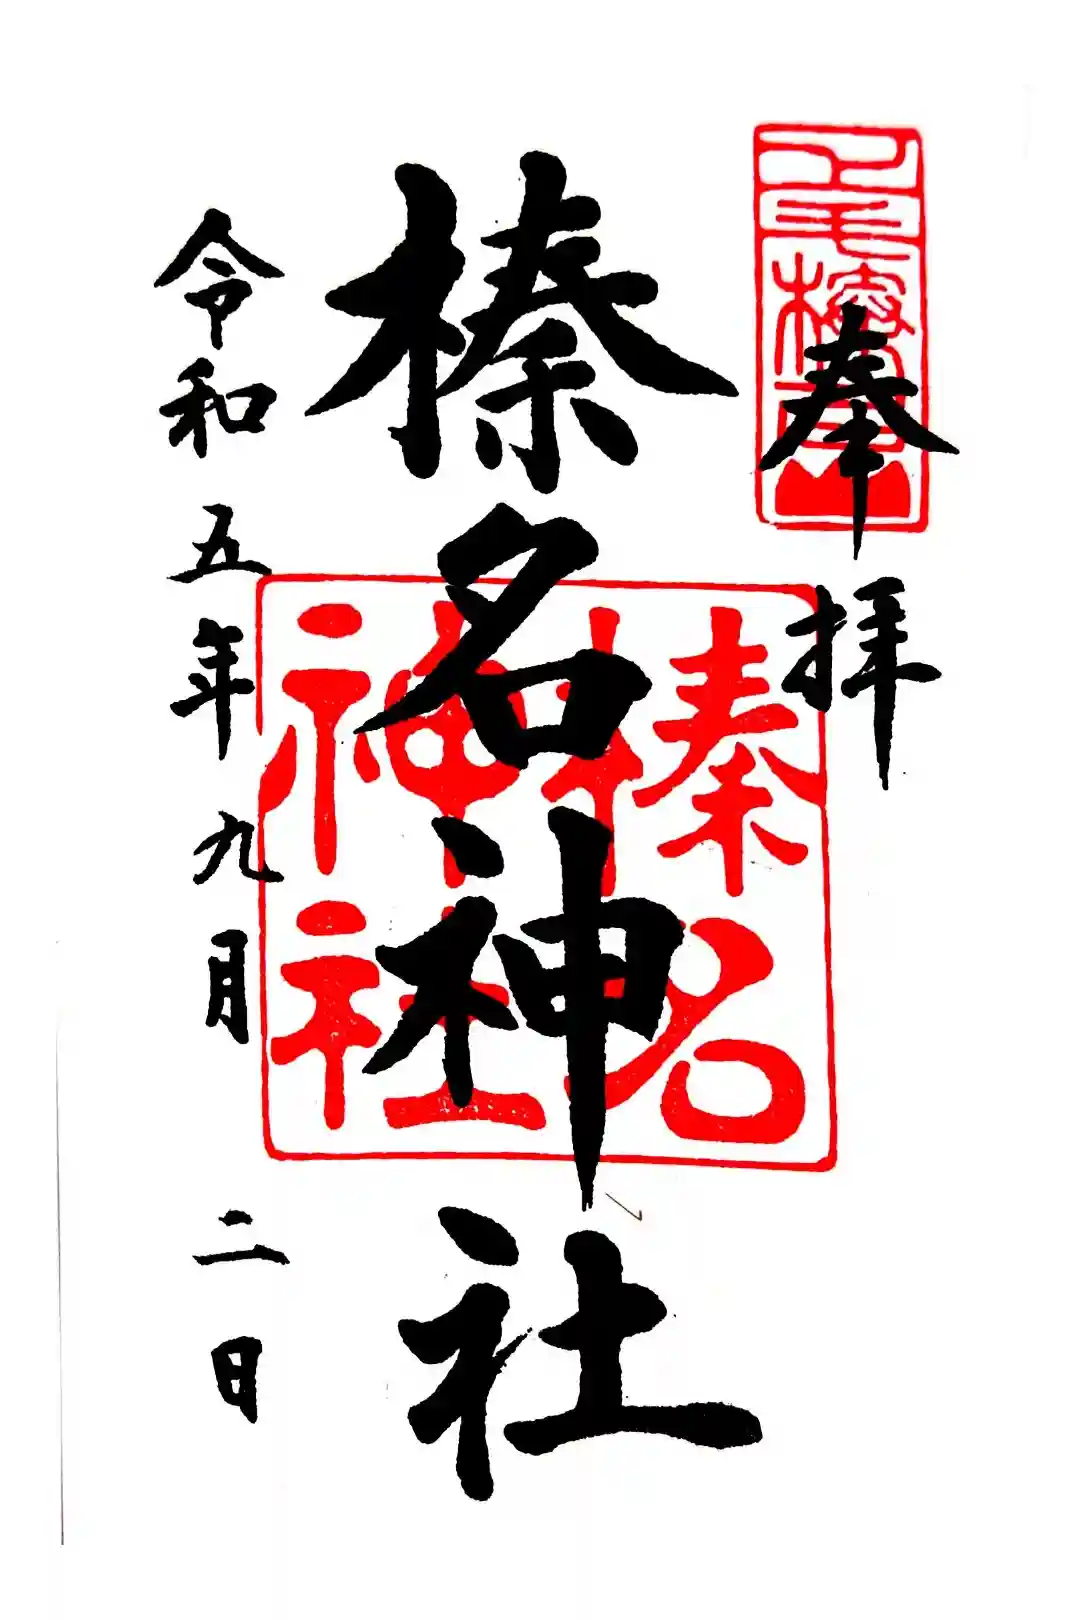 奉拝
榛名神社
榛名神社
令和五年九月二日